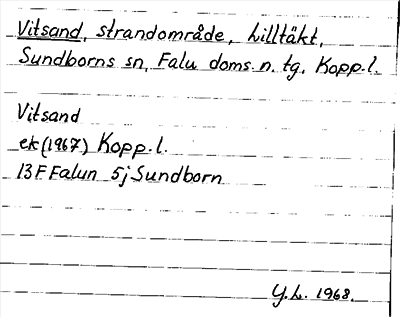 Vitsand, strandområde, Lilltäkt,
Sundborns sn, Falu doms. n. tg, Kopp. l.
Vitsand
ek (1967) Kopp. l.
13 F Falun 5j Sundborn
Y.L. 1968.